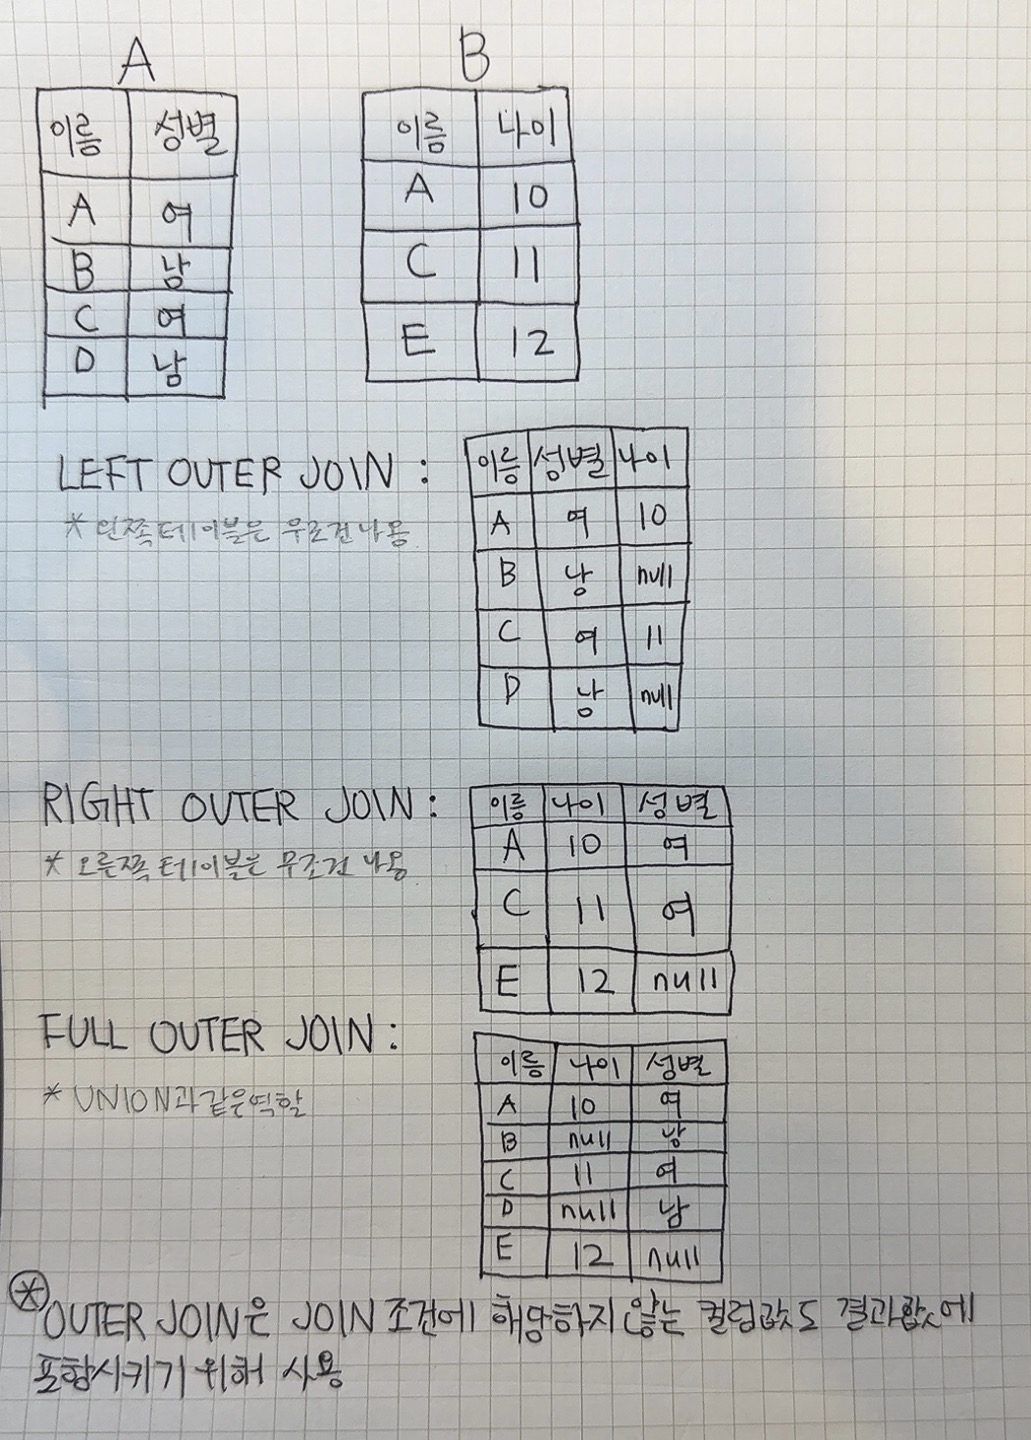 A
이름 성별
A 여
B 남
C 여
D 남
B
이름 나이
A 10
C 11
E 12
LEFT OUTER JOIN :
* 왼쪽 테이블은 무조건 나옹
이름 성별 나이
A 여 10
B 낭 null
C 여 11
D 낭 null
RIGHT OUTER JOIN :
* 오른쪽 테이블은 무조건 나옹
이름 나이 성별
A 10 여
C 11 여
E 12 null
FULL OUTER JOIN :
* UNION과 같은 역할
이름 나이 성별
A 10 여
B null 낭
C 11 여
D null 남
E 12 null
* OUTER JOIN은 JOIN 조건에 해당하지 않는 컬럼값도 결과값에
포함시키기 위해 사용